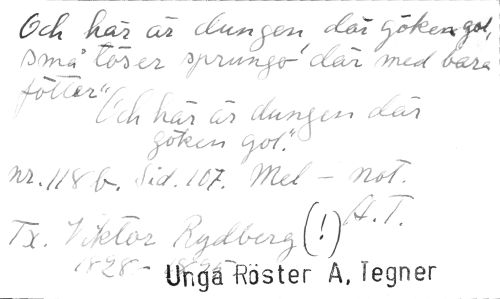 Och här är dungen där göken gol,
små töser sprungo där med bara
fötter"
"Och här är dungen där
göken gol."
nr. 118 b. Sid. 107. Mel – not.
A.T.
Tx. Viktor Rydberg (!)
1828 - 1895
Unga Röster A. Tegner